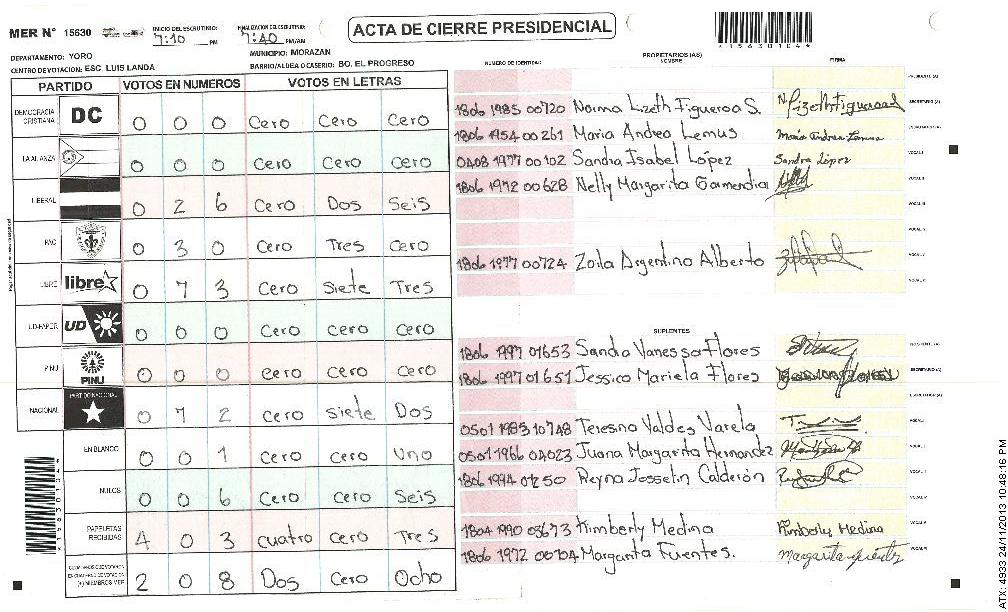 MER N° 15630 INICIO DEL ESCRUTINIO: 7:10 PM FINALIZACION DEL ESCRUTINIO: 7:40 PM/AM ACTA DE CIERRE PRESIDENCIAL *15630104*
DEPARTAMENTO: YORO MUNICIPIO: MORAZAN
CENTRO DE VOTACION: ESC. LUIS LANDA BARRIO/ALDEA O CASERIO: BO. EL PROGRESO
PARTIDO VOTOS EN NUMEROS VOTOS EN LETRAS
DEMOCRACIA CRISTIANA DC 0 0 0 Cero Cero Cero
LA ALIANZA 0 0 0 Cero Cero Cero
LIBERAL 0 2 6 Cero Dos Seis
PAC 0 3 0 Cero Tres Cero
LIBRE libre 0 7 3 Cero Siete Tres
UD-FAPER UD 0 0 0 Cero cero cero
PINU PINU 0 0 0 cero cero Cero
NACIONAL PARTIDO NACIONAL 0 7 2 cero siete Dos
EN BLANCO 0 0 1 Cero cero Uno
NULOS 0 0 6 Cero cero Seis
PAPELETAS RECIBIDAS 4 0 3 cuatro cero Tres
2 0 8 Dos Cero Ocho
PROPIETARIOS (AS)
NUMERO DE IDENTIDAD NOMBRE FIRMA
PRESIDENTE (A)
1806 1985 00720 Norma Lizeth Figueroa S. SECRETARIO (A)
1806 1954 00261 Maria Andrea Lemus Maria Andrea Lemus ESCRUTADOR (A)
0408 1977 00102 Sandra Isabel López Sandra López VOCAL I
1806 1972 00628 Nelly Margarita Garmendia VOCAL II
VOCAL III
VOCAL IV
1806 1977 00724 Zoila Argentina Alberto VOCAL V
VOCAL VI
SUPLENTES
1806 1997 01653 Sandra Vanessa Flores PRESIDENTE (A)
1806 1997 01651 Jessica Mariela Flores SECRETARIO (A)
ESCRUTADOR (A)
0501 1983 10748 Teresina Valdes Varela VOCAL I
0501 1966 04023 Juana Margarita Hernandez VOCAL II
1806 1994 01250 Reyna Josselin Calderón
VOCAL IV
1804 1990 03673 Kimberly Medina Kimberly Medina VOCAL V
1806 1972 00704 Margarita Fuentes. VOCAL VI
ATX: 4933 24/11/2013 10:48:16 PM